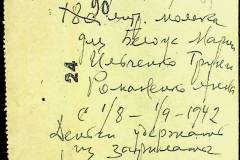 90
литр. молока
для Белоус Марии
Ильченко Груни
Романенко Анны
с 1/8 – 1/9 – 1942
Деньги удержать
из зарплаты
24